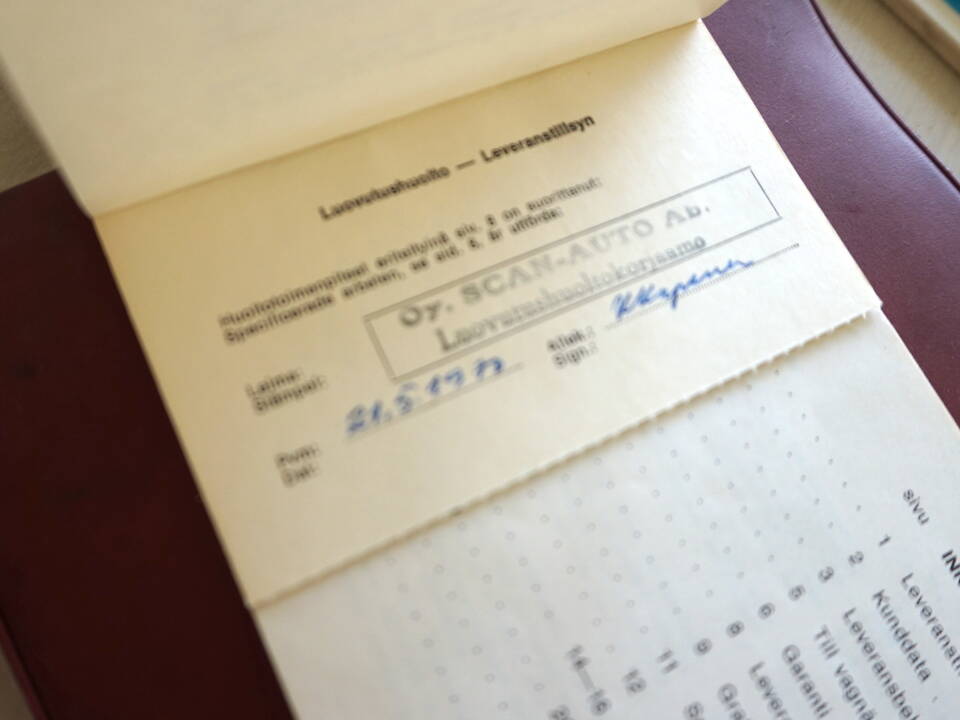 Luovutushuolto — Leveranstillsyn
Huoltotoimenpiteet eriteltyinä siv. 5 on suoritettut:
Specificerade arbeten, se sid. 5, är utförda:
Oy. SCAN-AUTO AB.
Luovutushuoltokorjaamo
Leima:
Stämpel:
Allek.:
Sign.:
Pvm:
Dat:
21.5.19
sivu
1
2
3
5
6
8
9
11
12
14—16
Kunddata
Till vagn
Garanti